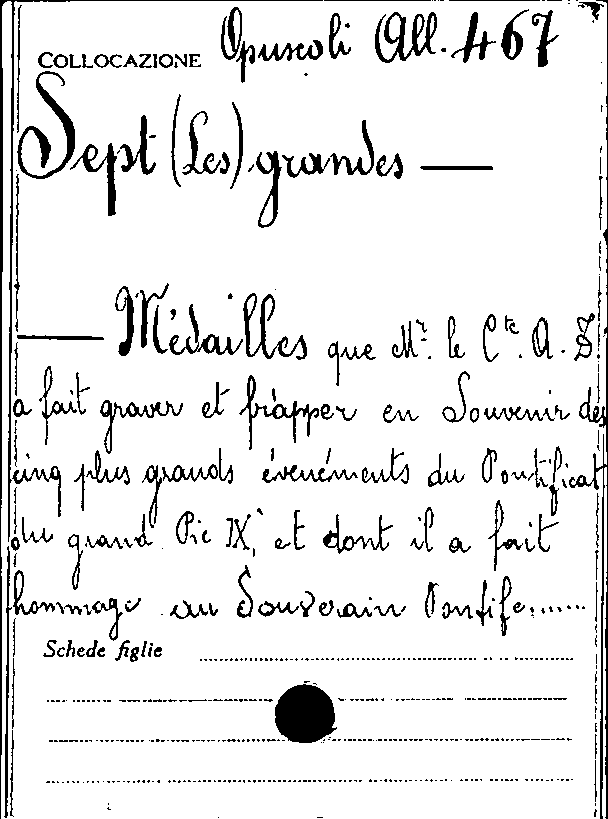 COLLOCAZIONE Opuscoli All. 467
Sept (Les) grandes —
— Médailles que Mr. le Cte. A. D
a fait graver et frapper en Souvenir des
cinq plus grands événéments du Pontificat
du grand Pie IX, et dont il a fait
hommage au Souverain Pontife.......
Schede figlie